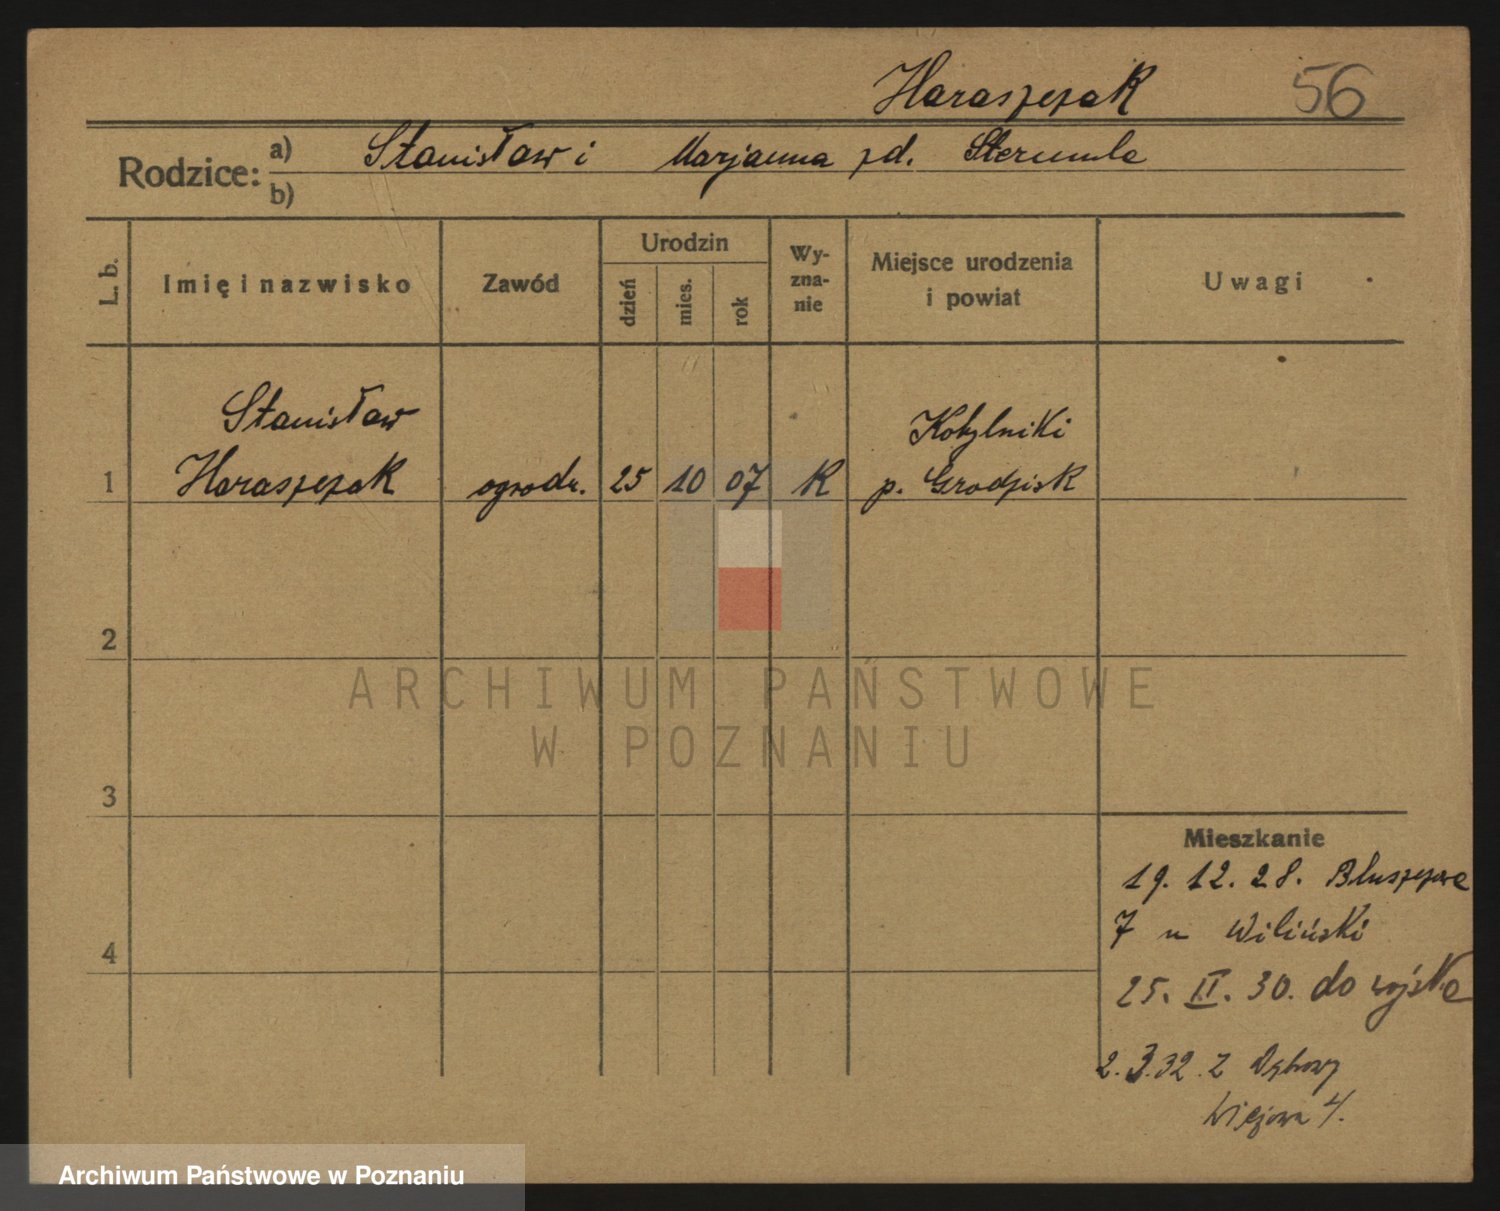 Haraszczak 56
Rodzice: a) Stanisław i Marjanna zd.
b)
L. b. Imię i nazwisko Zawód Urodzin dzień mies. rok Wyznanie Miejsce urodzenia i powiat Uwagi
Stanisław Kobylniki
1 Haraszczak ogrodn. 25 10 07 K p. Grodzisk
2
ARCHIWUM PAŃSTWOWE
W POZNANIU
3
Mieszkanie
19. 12. 28. Bluszczowa
7 u Wiliński
4
25. II. 30. do wojska
2.3.32. z Dąbrowy
Wiejowa 4.
Archiwum Państwowe w Poznaniu